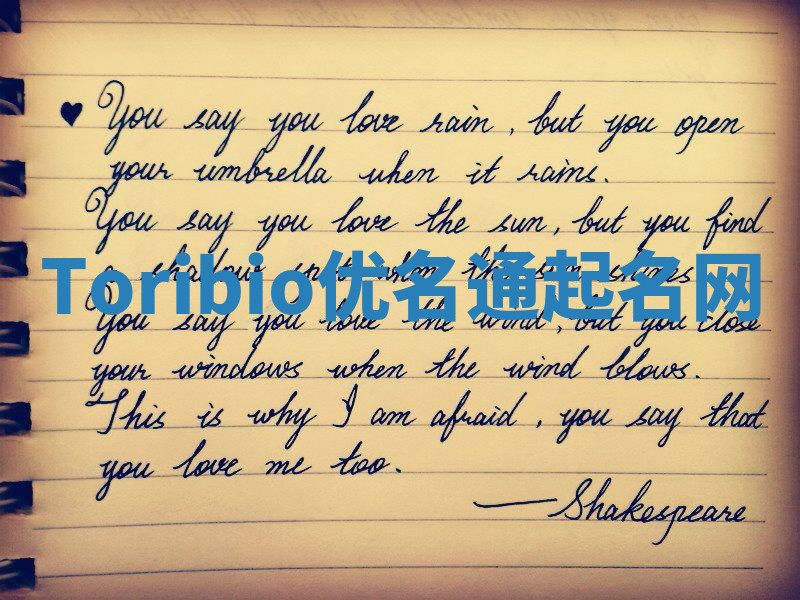 You say you love rain, but you open
your umbrella when it rains.
You say you love the sun, but you find
a shadow spot when the sun shines
Toribio优名通起名网
You say you love the wind, but you close
your windows when the wind blows.
This is why I am afraid, you say that
you love me too.
—Shakespeare